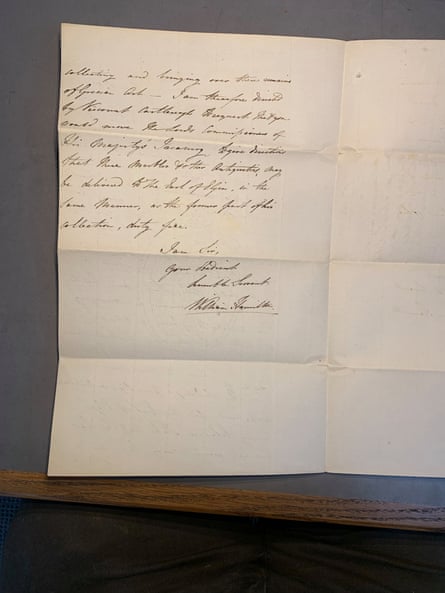 collecting and bringing over these remains
of Grecian Art — I am therefore directed
by Viscount Castlereagh to request that you
would move the Lords Commissioners of
His Majesty's Treasury to give directions
that these Marbles & other Antiquities may
be delivered to the Earl of Elgin, in the
same Manner, as the former part of his
collection, duty free.
I am Sir,
Your Obedient
humble Servant
William Hamilton